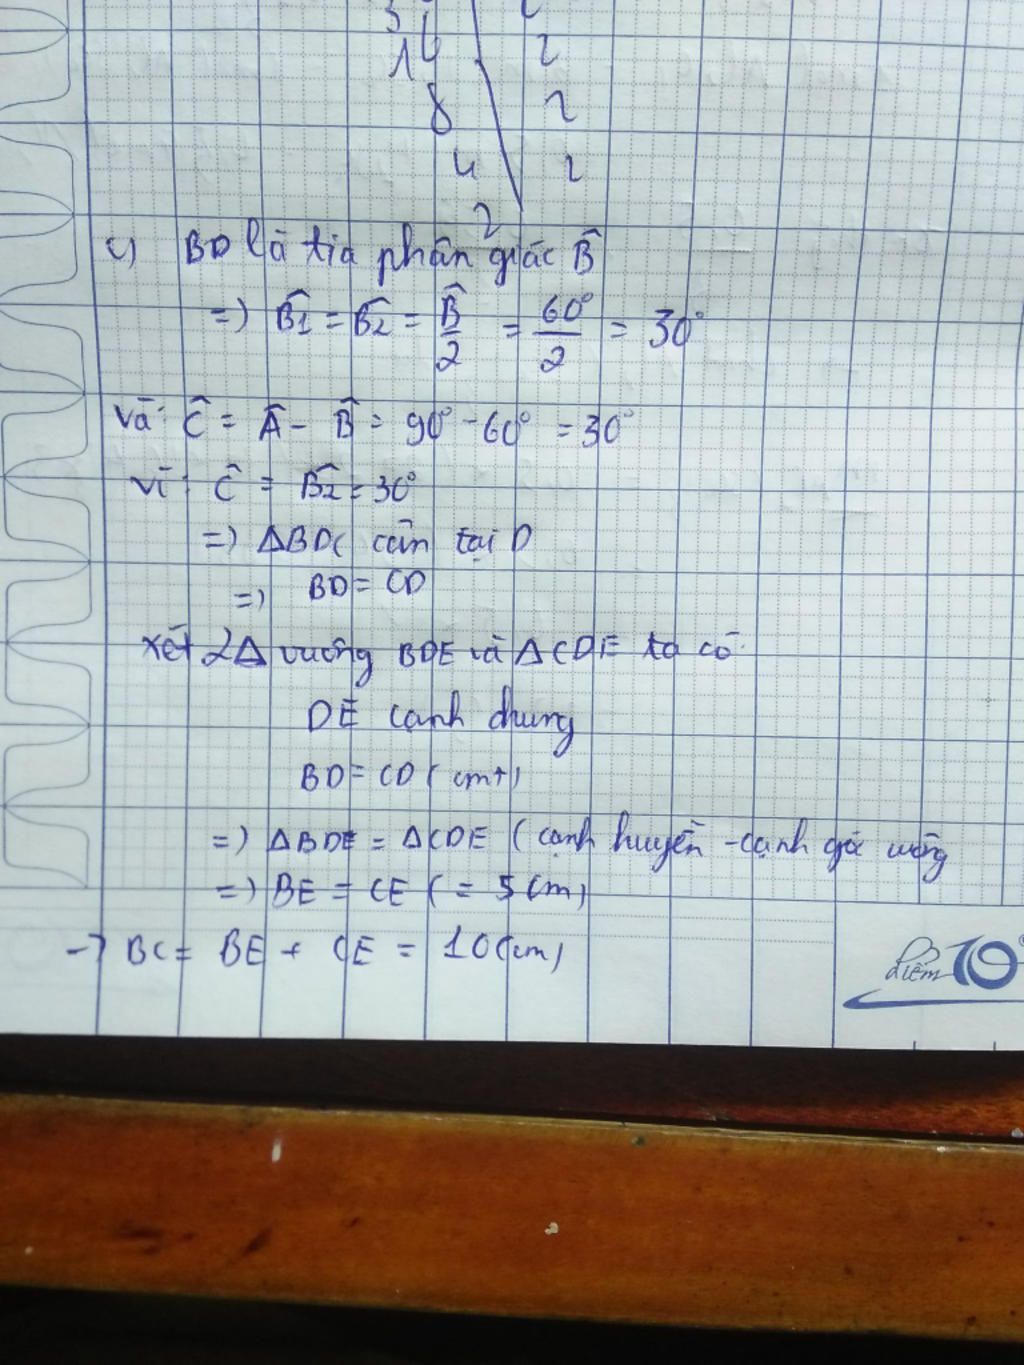 16 2
8 2
4 2
2
c) BD là tia phân giác B̂
=) B̂1 = B̂2 = B̂/2 = 60°/2 = 30°
và: Ĉ = Â - B̂ = 90° - 60° = 30°
vì: Ĉ = B̂2 = 30°
=) ΔBDC cân tại D
=) BD = CD
xét 2Δ vuông BDE và ΔCDE ta có:
DE cạnh chung
BD = CD (cmt)
=) ΔBDE = ΔCDE (cạnh huyền - cạnh góc vuông
=) BE = CE (= 5cm)
-> BC = BE + CE = 10(cm)
Điểm 10